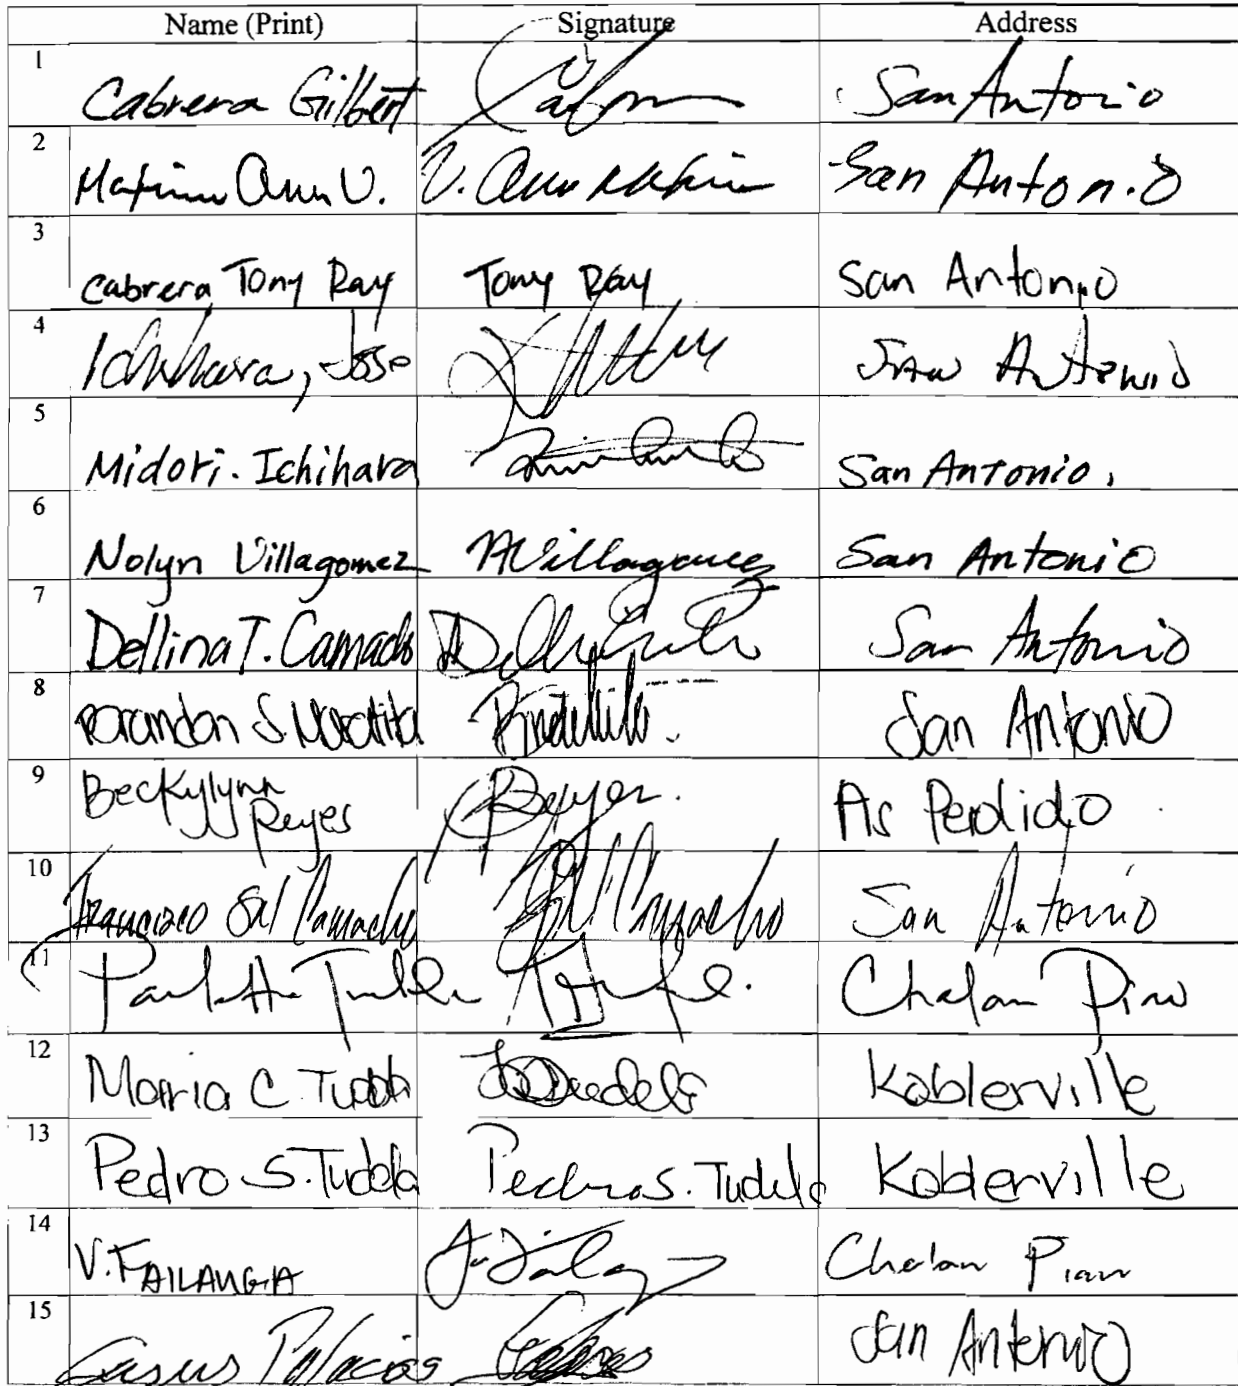 Name (Print) Signature Address
1 Cabrera Gilbert San Antonio
2 Ann V. V. Ann San Antonio
3 Cabrera, Tony Ray Tony Ray San Antonio
4 Ichihara, Jose San Antonio
5 Midori. Ichihara San Antonio.
6 Nolyn Villagomez NVillagomez San Antonio
7 Dellina T. Camacho San Antonio
8 Brandon S. Maratita San Antonio
9 Beckylynn
Reyes Reyes. As Perdido
10 Francisco Sal Camacho Camacho San Antonio
11 Chalan Piao
12 Maria C. Tudela Koblerville
13 Pedro S. Tudela Pedro S. Tudela Koblerville
14 V. FAILAUGIA Chalan Piao
15 Palacios San Antonio